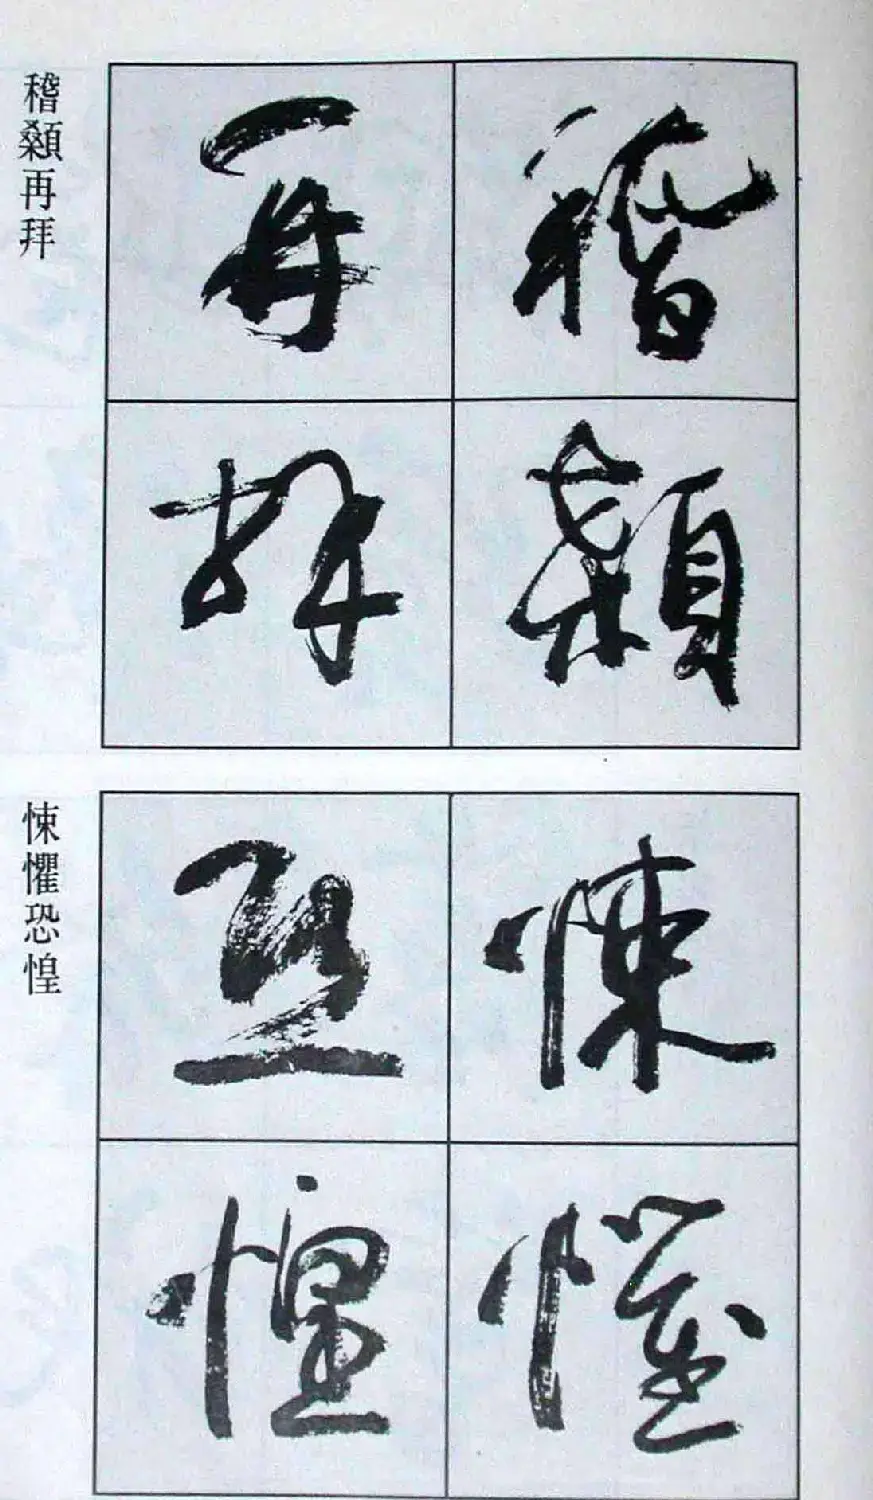 稽顙再拜
稽顙
再拜
悚懼恐惶
悚懼
恐惶